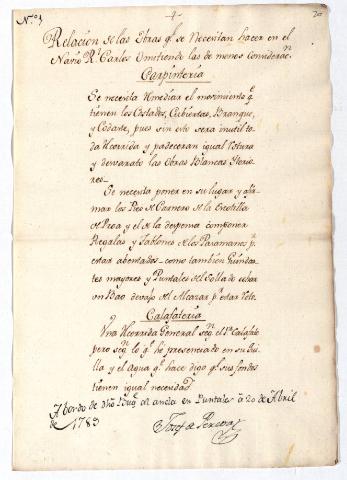 N.º 3
1
20
Relacion de las Obras q.e se Necesitan hacer en el
Navio R.l Carlos Omitiendo las de menos consideraz.n
Carpinteria
Se necesita Remediar el movimiento q.e
tienen los Costados, Cubiertas, Branque,
y Codaste, pues sin esto sera inutil to
da Recorrida y padeceran igual Rotura
y desvarato las Obras Blancas Yterio
res
Se necesita poner en su lugar y afir
mar los Pies de Carnero de la Escotilla
de Proa y el de la despensa componer
Regalas y Tablones de los Paramanos p.r
estar abentados como tambien Guindas
tes mayores y Puntales del Sollado echar
un Bao devajo del Alcazar p.r estar Roto
Calafateria
Una Recorrida General seg.n el 1.º Calafate
pero seg.n lo q.e he presenciado en su Qui
lla y el Agua q.e hace digo q.e sus fondos
tienen igual necesidad
Abordo de dho Buq.e al ancla en Puntales à 20 de Abril
de 1789
Josef de Pereda